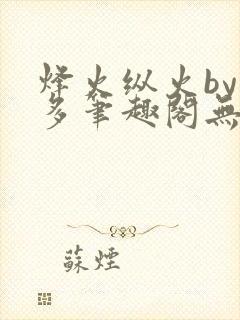 烽火纵火by
多笔趣阁無
蘇煙